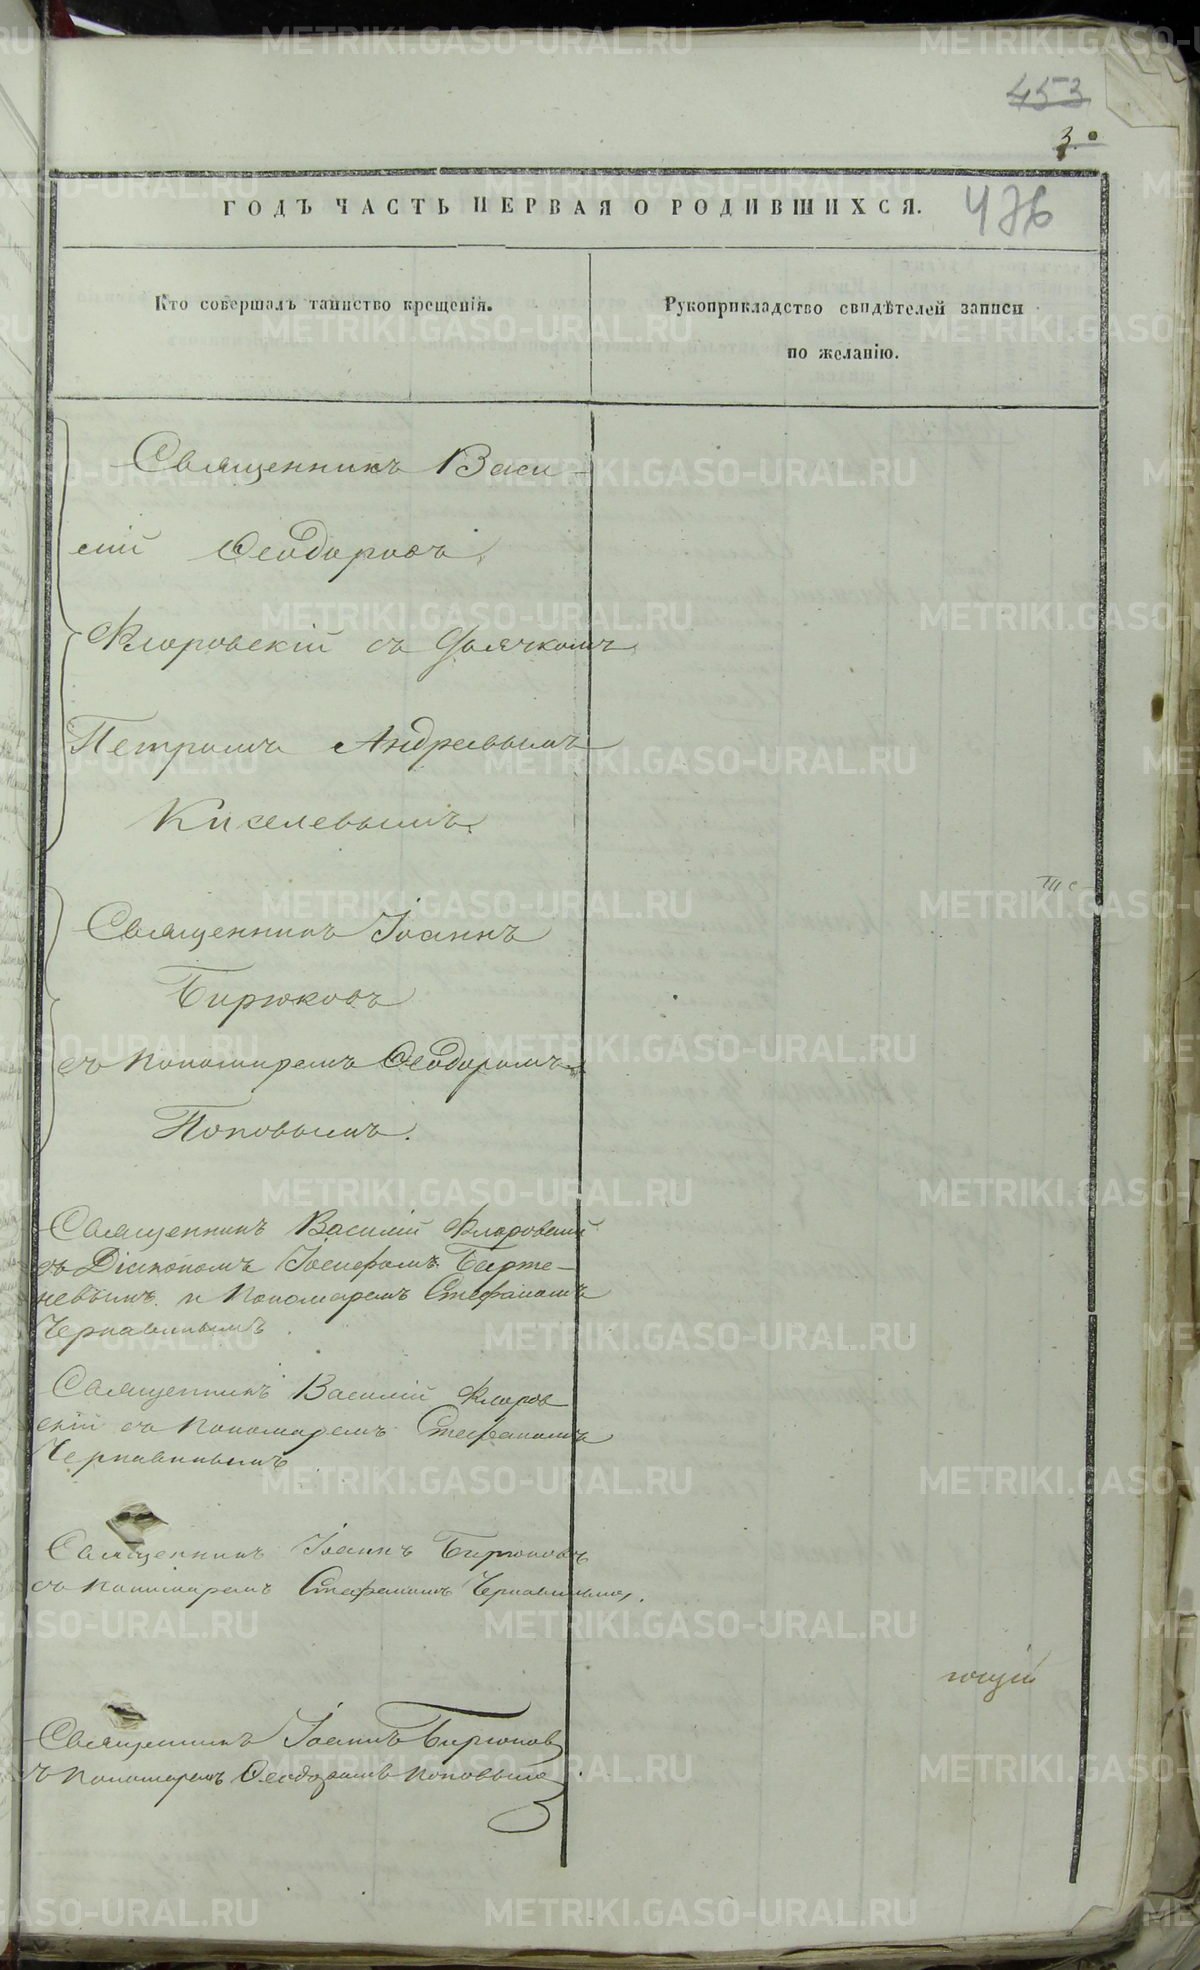 453
3.
ГОДЪ ЧАСТЬ ПЕРВАЯ О РОДИВШИХСЯ.
476
Кто совершалъ таинство крещенія.
Рукоприкладство свидѣтелей записи
по желанію.
Священникъ Васи-
лій Ѳеодоровъ
Флоровскій съ Дьячкомъ
Петромъ Андреевымъ
Киселевымъ.
Священникъ Іоаннъ
Бирюковъ
съ Пономаремъ Ѳеодоромъ
Поповымъ.
Священникъ Василій Флоровскій
съ Діакономъ Іосифомъ Барте-
невымъ и Пономаремъ Стефаномъ
Чернавинымъ.
Священникъ Василій Флоров
скій съ Пономаремъ Стефаномъ
Чернавинымъ
Священникъ Іоаннъ Бирюковъ
съ Пономаремъ Стефаномъ Чернавинымъ.
ющій
Священникъ Іоаннъ Бирюковъ
съ Пономаремъ Ѳеодоромъ Поповымъ
METRIKI.GASO-URAL.RU